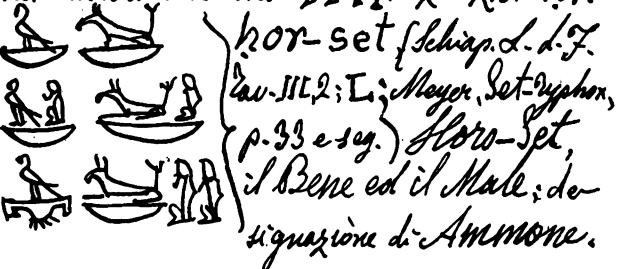 ḥor-set (Schiap. L. d. F.
Tav. III, 2; E. Meyer, Set-Typhon,
p. 33 e seg.) Horo-Set,
il Bene ed il Male; de-
signazione di Ammone.